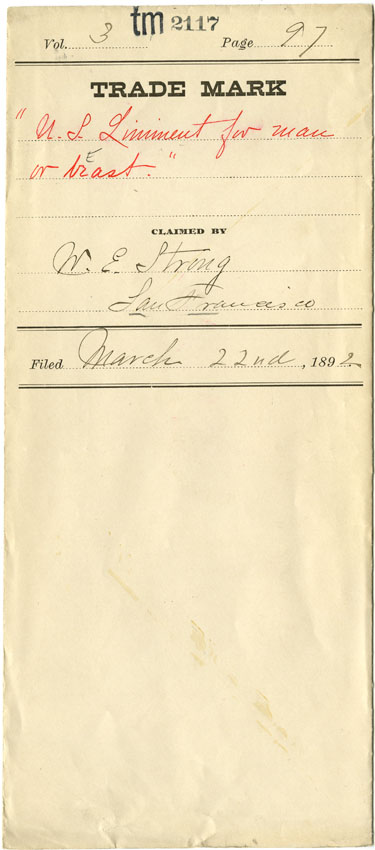 tm 2117
Vol. 3 Page 97
TRADE MARK
"U. S. Liniment for man
or bEast."
CLAIMED BY
W. E. Strong
San Francisco
Filed March 22nd, 1892.